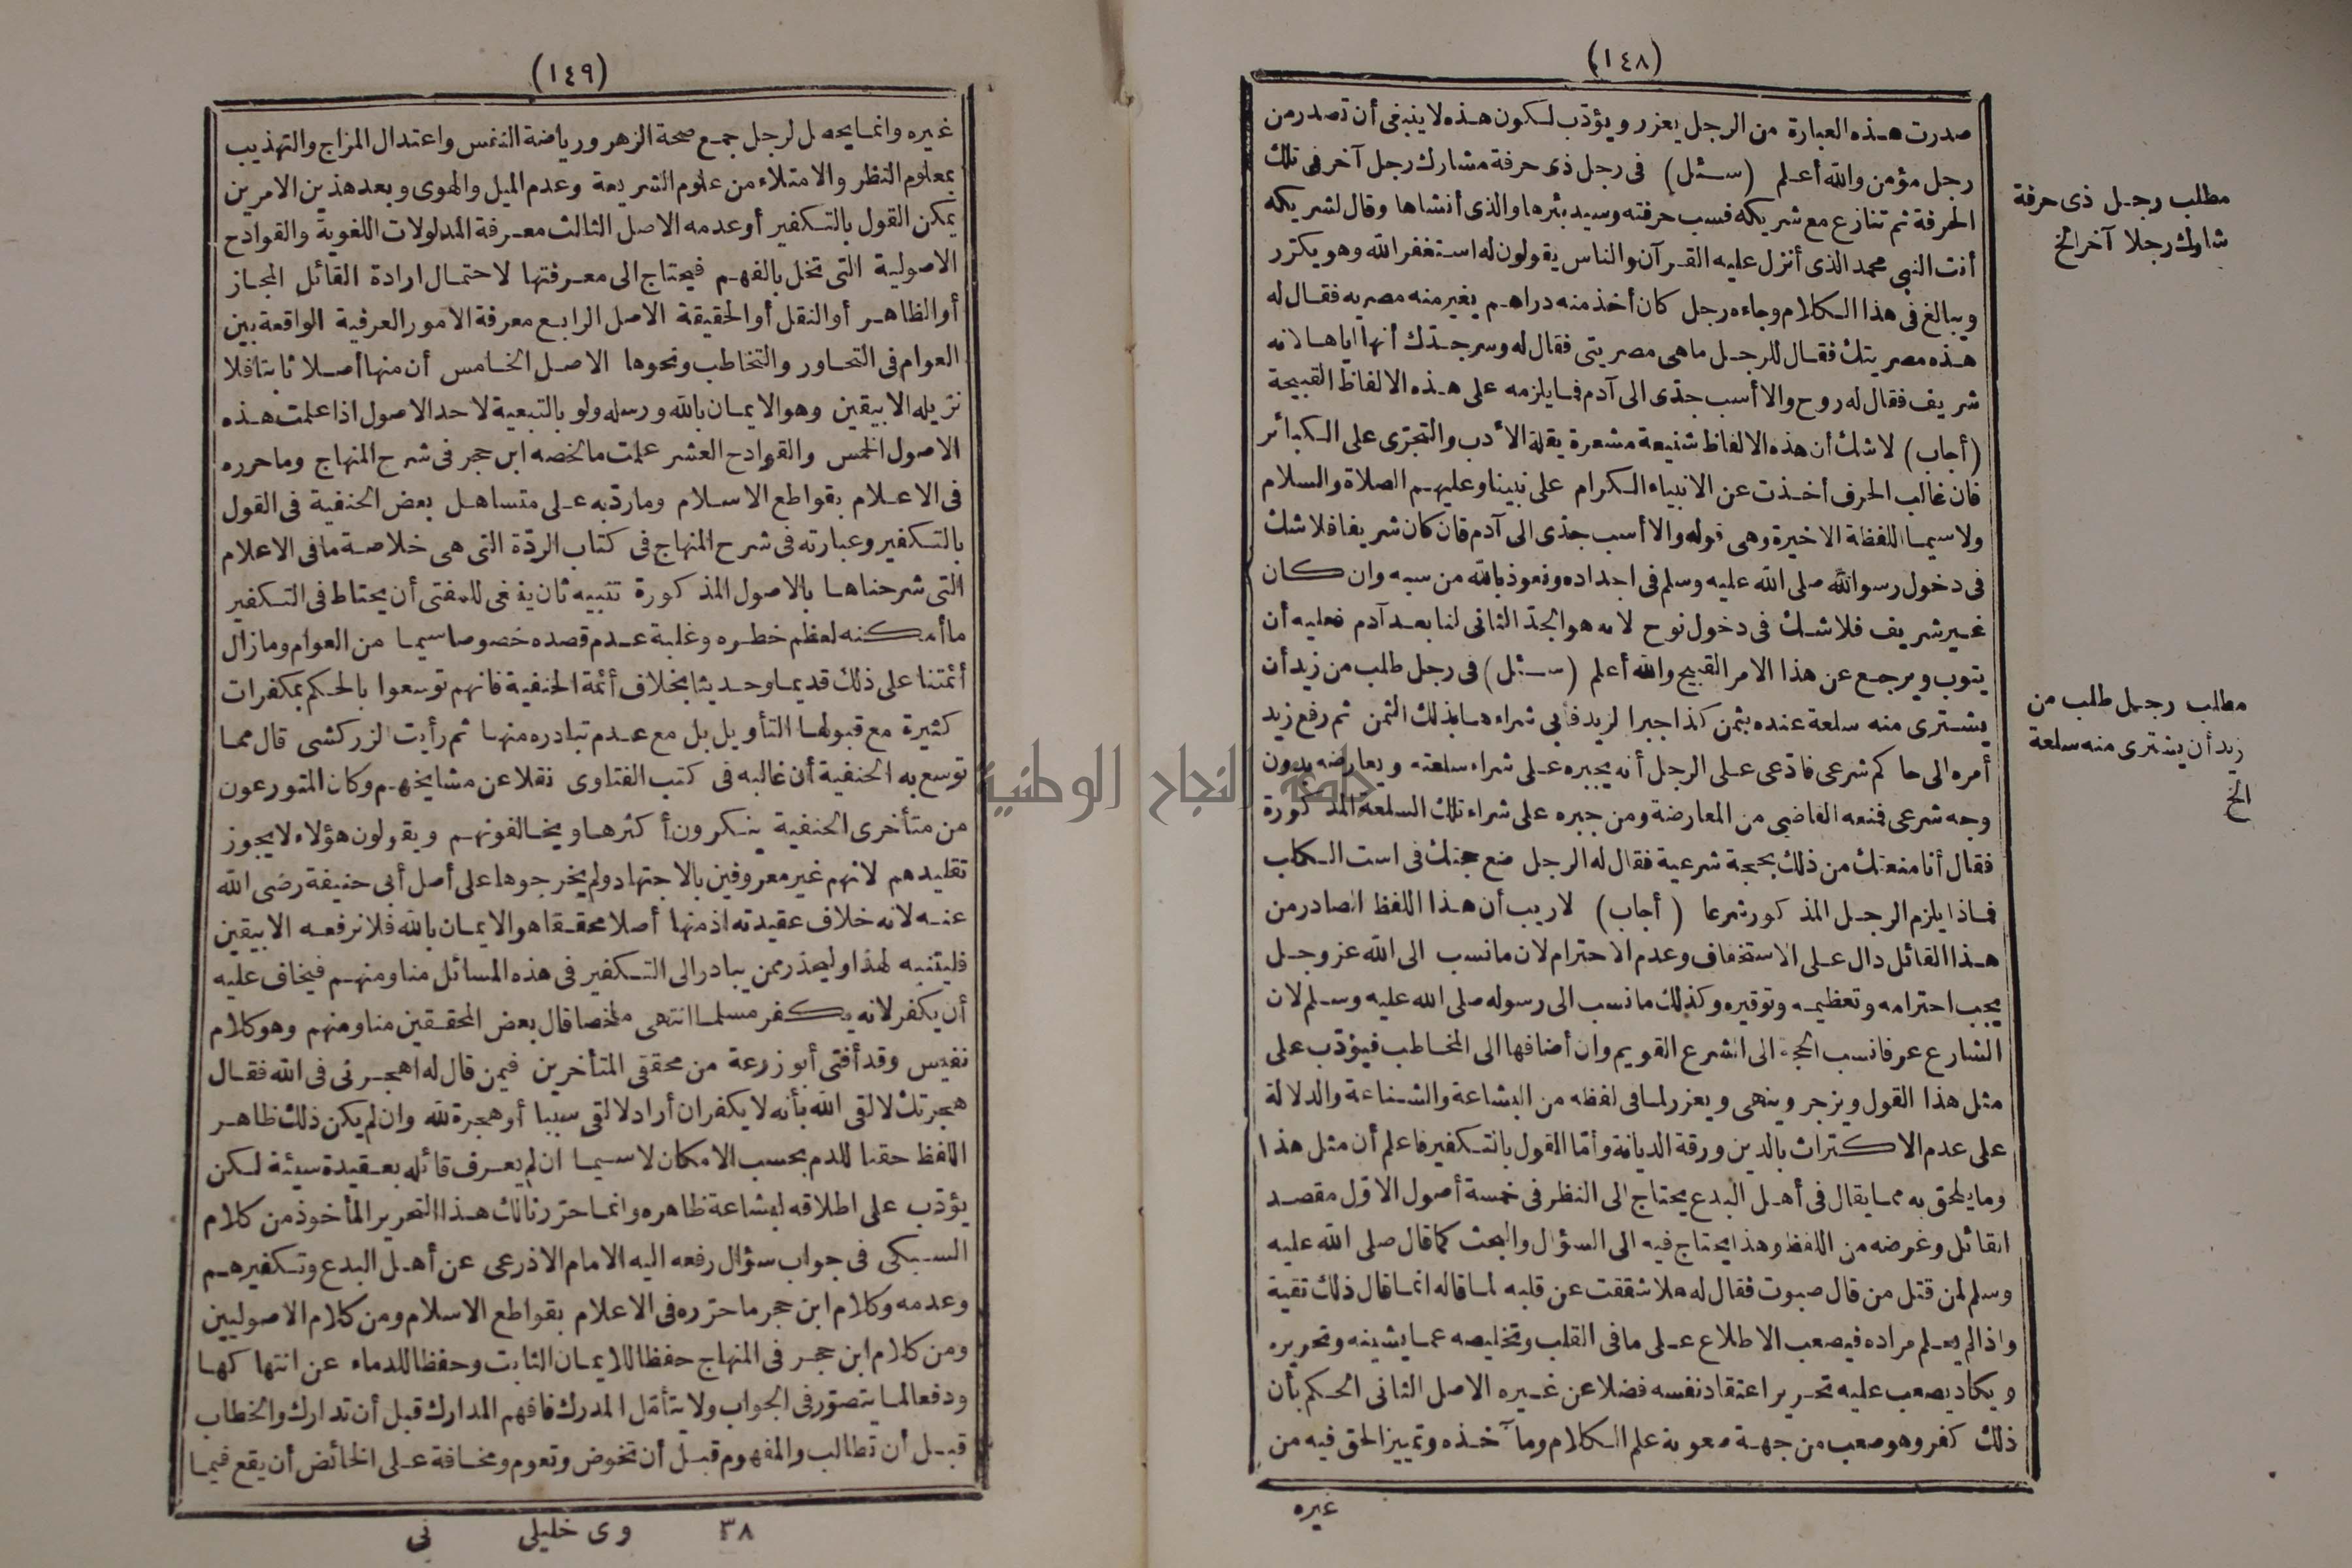 (١٤٨)
صدرت هذه العبارة من الرجل يعزر ويؤدّب لكون هذه لا ينبغى أن تصدر من
رجل مؤمن والله أعلم (سئل) فى رجل ذى حرفة مشارك رجل آخر فى تلك
الحرفة ثم تنازع مع شريكه فسب حرفته وسيد بئرها والذى أنشاها وقال لشريكه
أنت النبى محمد الذى أنزل عليه القرآن والناس يقولون له استغفر الله وهو يكرر
ويبالغ فى هذا الكلام وجاءه رجل كان أخذ منه دراهم بغير منه مصريه فقال له
هذه مصريتك فقال للرجل ما هى مصريتى فقال له وسر جدّك أنها اياها لانه
شريف فقال له روح والا أسب جدّى الى آدم فما يلزمه على هذه الالفاظ القبيحة
(أجاب) لا شك أن هذه الالفاظ شنيعة مشعرة بقلة الأدب والتجرّى على الكبائر
فان غالب الحرف أخذت عن الانبياء الكرام على نبينا وعليهم الصلاة والسلام
ولا سيما اللفظة الاخيرة وهى قوله والا أسب جدّى الى آدم فان كان شريفا فلا شك
فى دخول رسول الله صلى الله عليه وسلم فى اجداده ونعوذ بالله من سبه وان كان
غير شريف فلا شك فى دخول نوح لانه هو الجدّ الثانى لنا بعد آدم فعليه أن
يتوب ويرجع عن هذا الامر القبيح والله أعلم (سئل) فى رجل طلب من زيد أن
يشترى منه سلعة عنده بثمن كذا جبرا لزيد فأبى شراءها بذلك الثمن ثم رفع زيد
أمره الى حاكم شرعى فادّعى على الرجل أنه يجبره على شراء سلعته ويعارضه بدون
وجه شرعى فمنعه القاضى من المعارضة ومن جبره على شراء تلك السلعة المذكورة
فقال أنا منعتك من ذلك بحجة شرعية فقال له الرجل ضع حجتك فى است الكلب
فماذا يلزم الرجل المذكور شرعا (أجاب) لا ريب أن هذا اللفظ الصادر من
هذا القائل دال على الاستخفاف وعدم الاحترام لان ما نسب الى الله عز وجل
يجب احترامه وتعظيمه وتوقيره وكذلك ما نسب الى رسوله صلى الله عليه وسلم لان
الشارع عرفا نسب الحجة الى الشرع القويم وان أضافها الى المخاطب فيؤدّب على
مثل هذا القول ويزجر وينهى ويعزر لما فى لفظه من البشاعة والشناعة والدلالة
على عدم الاكتراث بالدين ورقة الديانة وأمّا القول بالتكفير فاعلم أن مثل هذا
وما يلحق به مما يقال فى أهل البدع يحتاج الى النظر فى خمسة أصول الاوّل مقصد
القائل وغرضه من اللفظ وهذا يحتاج فيه الى السؤال والبحث كما قال صلى الله عليه
وسلم لمن قتل من قال صبوت فقال له هلا شققت عن قلبه لما قاله انما قال ذلك تقية
واذا لم يعلم مراده فيصعب الاطلاع على ما فى القلب وتخليصه عما يشينه وتحريره
ويكاد يصعب عليه تحرير اعتقاد نفسه فضلا عن غيره الاصل الثانى الحكم بأن
ذلك كفر وهو صعب من جهة صعوبة علم الكلام ومآخذه وتمييز الحق فيه من
غيره
مطلب رجل ذى حرفة
شارك رجلا آخر الخ
مطلب رجل طلب من
زيد أن يشترى منه سلعة
الخ
(١٤٩)
غيره وانما يحصل لرجل جمع صحة الزهر ورياضة النفس واعتدال المزاج والتهذيب
بمعلوم النظر والامتلاء من علوم الشريعة وعدم الميل والهوى وبعد هذين الامرين
يمكن القول بالتكفير أو عدمه الاصل الثالث معرفة المدلولات اللغوية والقوادح
الاصولية التى تخل بالفهم فيحتاج الى معرفتها لاحتمال ارادة القائل المجاز
أو الظاهر أو النقل أو الحقيقة الاصل الرابع معرفة الامور العرفية الواقعة بين
العوام فى التحاور والتخاطب ونحوها الاصل الخامس أن منها أصلا ثابتا فلا
نزيله الا بيقين وهو الايمان بالله ورسله ولو بالتبعية لاحد الاصول اذا علمت هذه
الاصول الخمس والقوادح العشر علمت ما لخصه ابن حجر فى شرح المنهاج وما حرره
فى الاعلام بقواطع الاسلام وما ردّ به على متساهل بعض الحنفية فى القول
بالتكفير وعبارته فى شرح المنهاج فى كتاب الردّة التى هى خلاصة ما فى الاعلام
التى شرحناها بالاصول المذكورة تنبيه ثان ينبغى للمفتى أن يحتاط فى التكفير
ما أمكنه لعظم خطره وغلبة عدم قصده خصوصا سيما من العوام وما زال
أئمتنا على ذلك قديما وحديثا بخلاف أئمة الحنفية فانهم توسعوا بالحكم بمكفرات
كثيرة مع قبولها التأويل بل مع عدم تبادره منها ثم رأيت الزركشى قال مما
توسع به الحنفية أن غالبه فى كتب الفتاوى نقلا عن مشايخهم وكان المتورعون
من متأخرى الحنفية ينكرون أكثرها ويخالفونهم ويقولون هؤلاء لا يجوز
تقليدهم لانهم غير معروفين بالاجتهاد ولم يخرجوها على أصل أبى حنيفة رضى الله
عنه لانه خلاف عقيدته اذ منها أصلا محققا هو الايمان بالله فلا نرفعه الا بيقين
فليتنبه لهذا وليحذر ممن يبادر الى التكفير فى هذه المسائل منا ومنهم فيخاف عليه
أن يكفر لانه يكفر مسلما انتهى ملخصا قال بعض المحققين منا ومنهم وهو كلام
نفيس وقد أفتى أبو زرعة من محققى المتأخرين فيمن قال له اهجرنى فى الله فقال
هجرتك لالقى الله بأنه لا يكفر ان أراد لالقى سببا أو هجرة لله وان لم يكن ذلك ظاهر
اللفظ حقنا للدم بحسب الامكان لا سيما ان لم يعرف قائله بعقيدة سيئة لكن
يؤدّب على اطلاقه لبشاعة ظاهره وانما حررنا لك هذا التحرير المأخوذ من كلام
السبكى فى جواب سؤال رفعه اليه الامام الاذرعى عن أهل البدع وتكفيرهم
وعدمه وكلام ابن حجر ما حرّره فى الاعلام بقواطع الاسلام ومن كلام الاصوليين
ومن كلام ابن حجر فى المنهاج حفظا للايمان الثابت وحفظا للدماء عن انتهاكها
ودفعا لما يتصوّر فى الجواب ولا يتأمّل المدرك فافهم المدارك قبل أن تدارك والخطاب
قبل أن تطالب والمفهوم قبل أن تخوض وتعوم ومخافة على الخائض أن يقع فيما
٣٨ وى خليلى نى
جامعة النجاح الوطنية